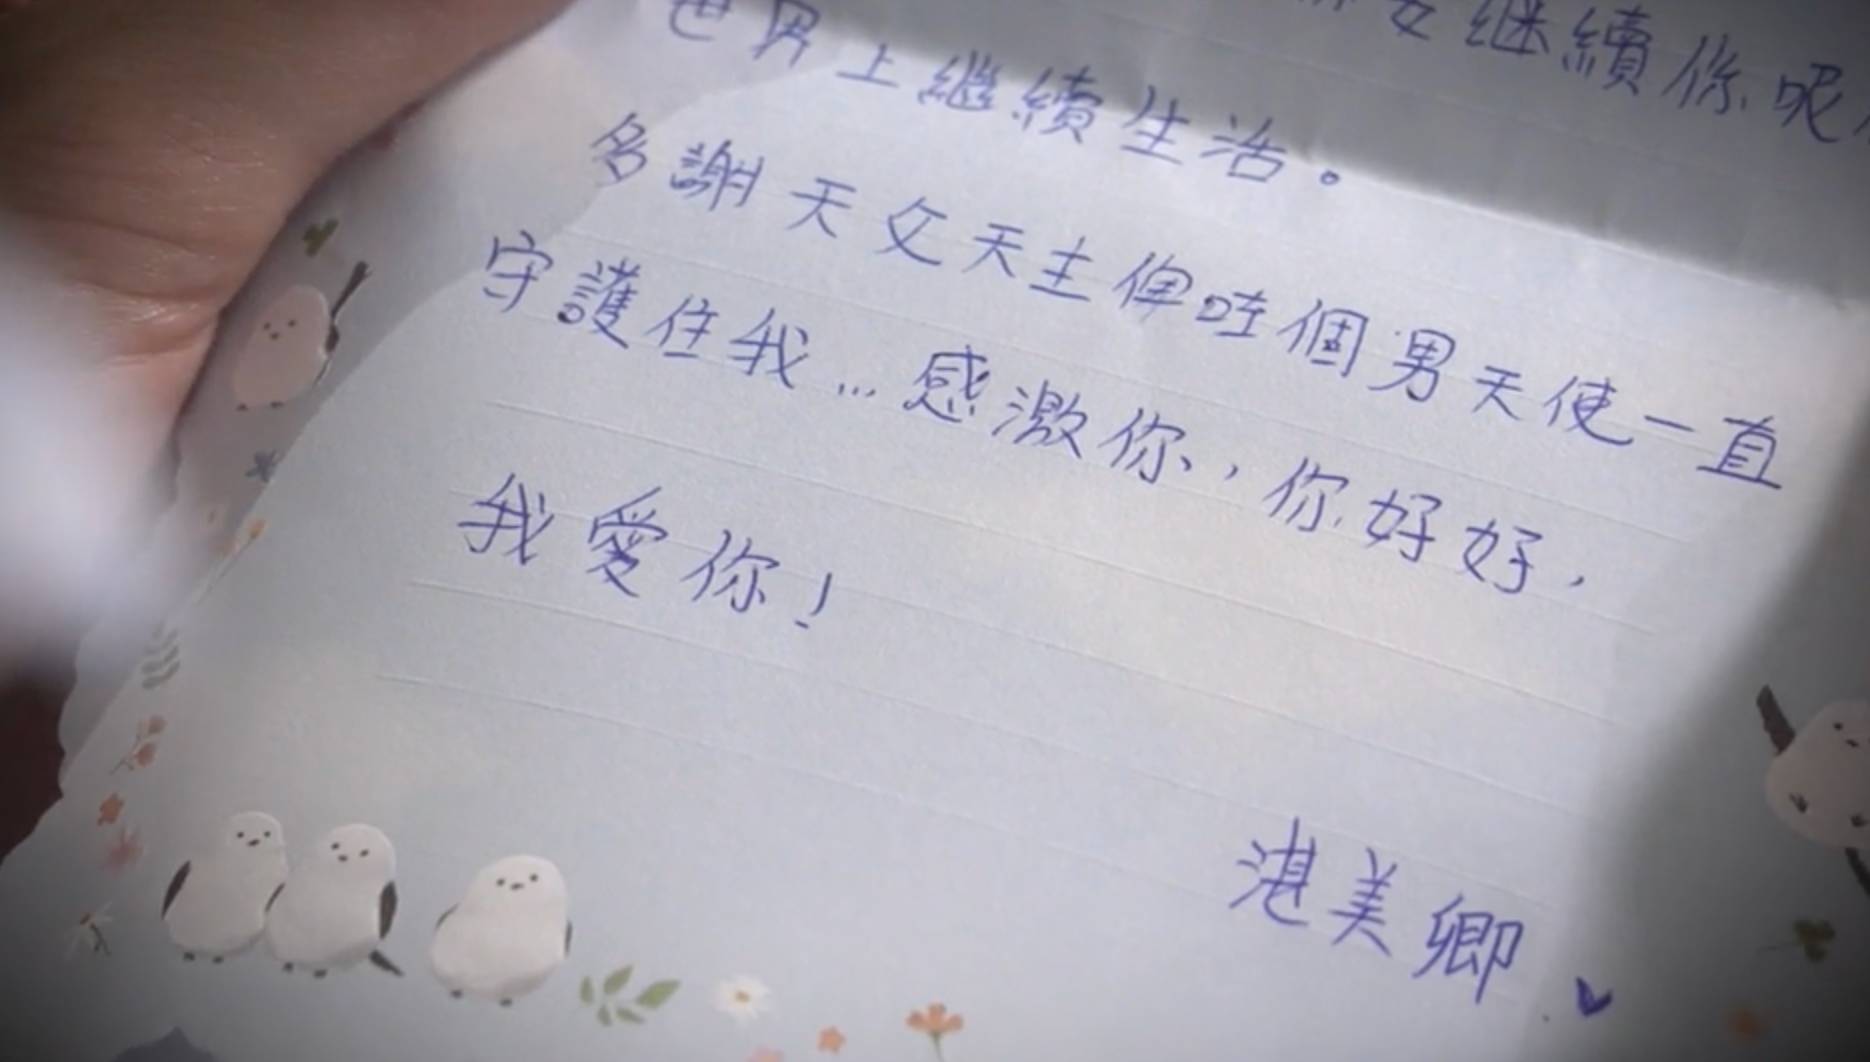 继續你呢
世界上繼續生活。
多謝天父天主俾咗個男天使一直
守護住我...感激你,你好好,
我愛你!
湛美卿♥